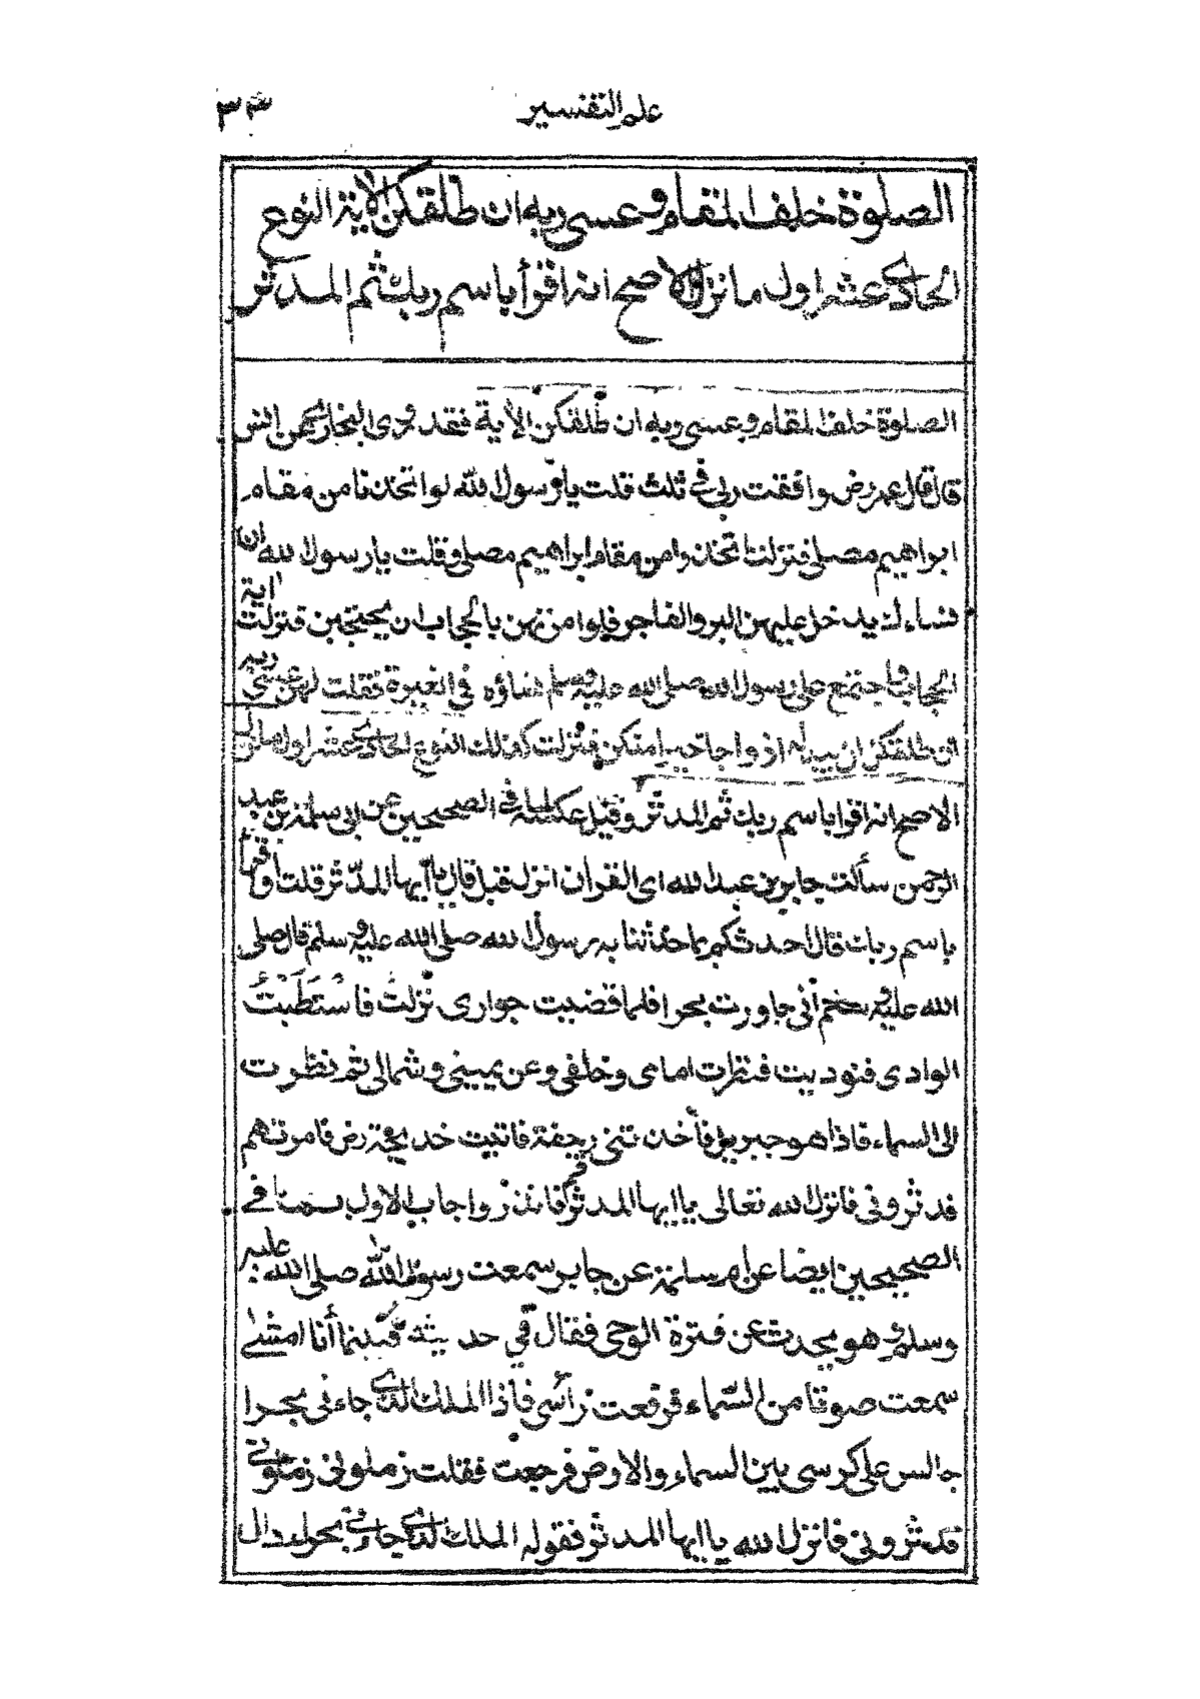 علم التفسير ٣٣
الصلوة خلف المقام وعسى ربه ان طلقكن الاية النوع
الحادي عشر اول ما نزل الاصح انه اقرأ باسم ربك ثم المدثر
الصلوة خلف المقام وعسى ربه ان طلقكن الآية فقد روى البخاري عن انس
قال قال عمر رض وافقت ربي في ثلث قلت يا رسول الله لو اتخذنا من مقام
ابراهيم مصلى فنزلت واتخذوا من مقام ابراهيم مصلى وقلت يا رسول الله ان
نساءك يدخل عليهن البر والفاجر فلو امرتهن بالحجاب ان يحتجبن فنزلت اية
الحجاب واجتمع على رسول الله صلى الله عليه وسلم نساؤه في الغيرة فقلت لهن عسى ربه
ان طلقكن ان يبدله ازواجا خيرا منكن فنزلت كذلك النوع الحادي عشر اول ما نزل
الاصح انه اقرا باسم ربك ثم المدثر وقيل عكسه في الصحيحين عن ابي سلمة بن عبد
الرحمن سألت جابر بن عبد الله اي القران انزل قبل قال يا أيها المدّثر قلت أو اقرأ
باسم ربك قال احدثكم بما حدثنا به رسول الله صلى الله عليه وسلم قال صلى
الله عليه وسلم أني جاورت بحرا فلما قضيت جواري نزلت فاستَطَبنتُ
الوادي فنوديت فنظرت امامي وخلفي وعن يميني وشمالي ثم نظرت
الى السماء فاذا هو جبريل فأخذتني رجفة فاتيت خديجة رض فامرتهم
فدثروني فانزل الله تعالى يا ايها المدثر قم فانذر واجاب الاول بما في
الصحيحين ايضا عن ابي سلمة عن جابر سمعت رسول الله صلى الله عليه
وسلم وهو يحدث عن فترة الوحي فقال في حديثه فبينما أنا امشي
سمعت صوتا من السماء فرفعت رأسي فأذا الملك الذي جاءني بحرا
جالس على كرسي بين السماء والارض فرجعت فقلت زملوني زملوني
فدثروني فانزل الله يا ايها المدثر فقوله الملك الذي جاءني بحراء دال